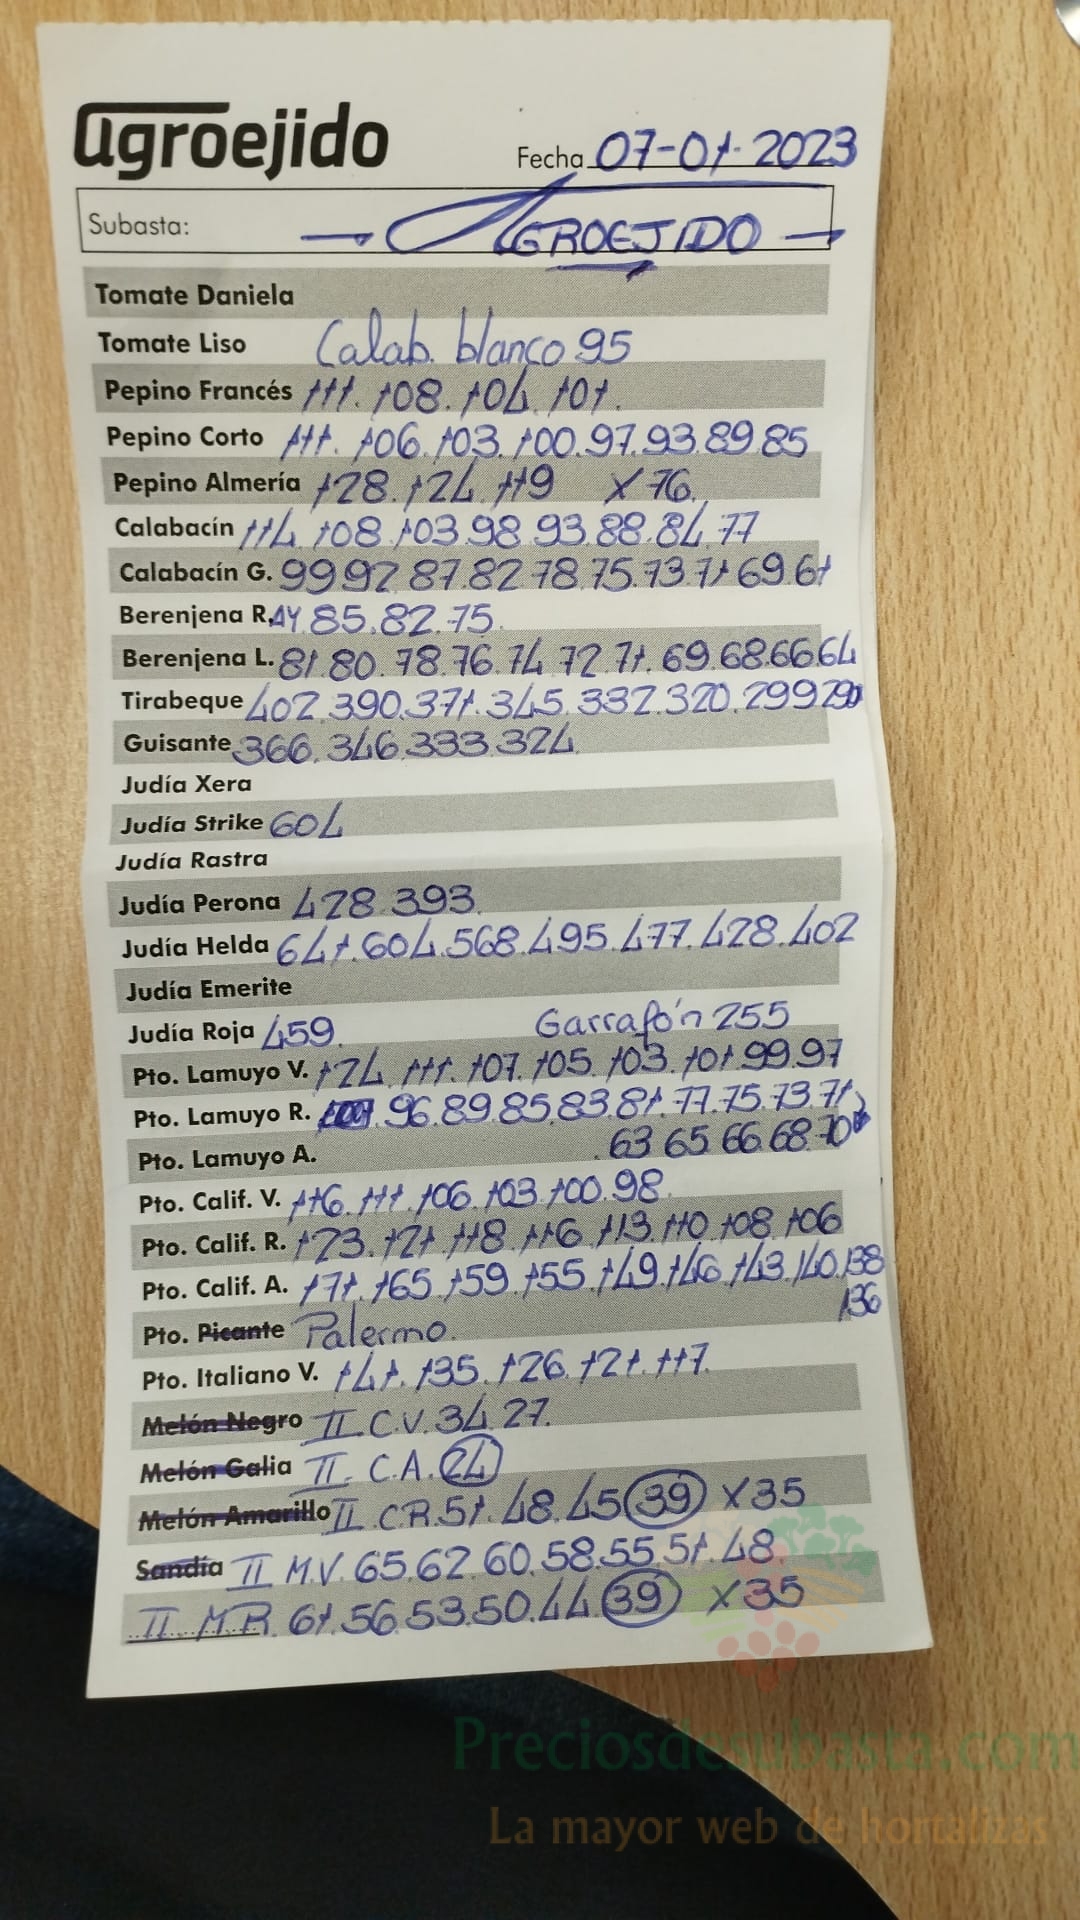 agroejido
Fecha 07-01-2023
Subasta: AGROEJIDO
Tomate Daniela
Tomate Liso Calab. blanco 95
Pepino Francés 111. 108. 104. 101.
Pepino Corto 111. 106. 103. 100. 97. 93. 89. 85
Pepino Almería 128. 124. 119 X 76.
Calabacín 114. 108. 103. 98. 93. 88. 84. 77
Calabacín G. 99 92 87. 82 78. 75. 73. 71 69. 61
Berenjena R. 85. 82. 75.
Berenjena L. 81. 80. 78. 76. 74 72. 71. 69. 68. 66. 64
Tirabeque 402. 390. 371. 345. 332. 320. 299 290
Guisante 366. 346. 333. 324.
Judía Xera
Judía Strike 604
Judía Rastra
Judía Perona 428. 393.
Judía Helda 641. 604. 568. 495. 477. 428. 402
Judía Emerite
Judía Roja 459. Garrafón 255
Pto. Lamuyo V. 124. 111. 107. 105. 103. 101. 99. 97
Pto. Lamuyo R. 96. 89. 85. 83. 81. 77. 75. 73. 71
Pto. Lamuyo A. 63 65 66. 68. 70
Pto. Calif. V. 116. 111. 106. 103. 100. 98.
Pto. Calif. R. 123. 121. 118. 116. 113. 110. 108. 106
Pto. Calif. A. 171. 165. 159. 155. 149. 146. 143. 140. 138
136
Pto. Picante Palermo.
Pto. Italiano V. 141. 135. 126. 121. 117.
Melón Negro II C.V. 34. 27.
Melón Galia II. C.A. 24
Melón Amarillo II C.R. 51. 48. 45 39 X 35
Sandía II M.V. 65. 62. 60. 58. 55. 51. 48.
II M.R. 61. 56. 53. 50. 44. 39 X 35
Preciosdesubasta.com
La mayor web de hortalizas